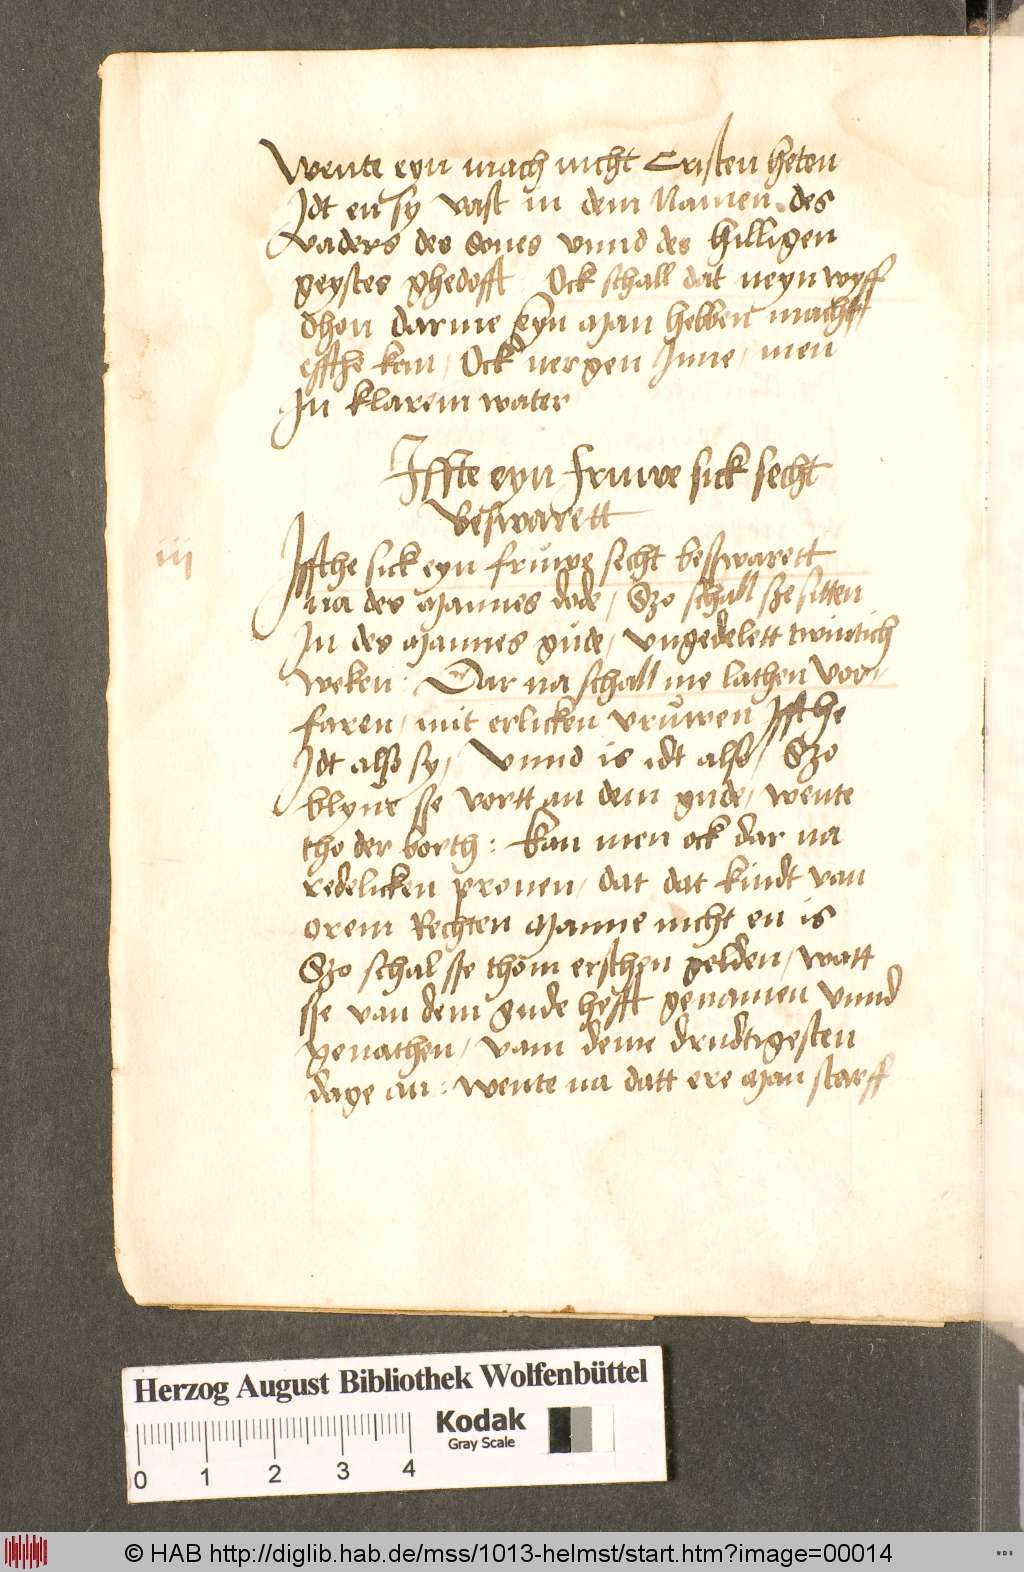 Wente eyn mach nicht Cristen heten
Idt en sy vast in dem Namen des
vaders des sones vnnd des hilligen
geystes ghedofft Ock schall dat neyn wyff
dhon darme eyn Man hebben macht
effthe kan / Ock nergen Inne / men
In klarem water
Iffte eyn fruwe sick secht
beswarett
iij
Iffthe sick eyn fruwe secht beswarett
na des Mannes dode / Szo schall sze sitten
In des Mannes gude / vngedelett twintich
weken : Dar na schall me lathen vor
faren / mit erlicken vruwen Iffthe
Idt also sy / Vnnd is idt also / Szo
blyue sse vortt an dem gude / wente
tho der borth : kan men ock dar na
redelicken prouen / dat dat kindt van
orem Rechten Manne nicht en is
Szo schal sse thom ersthen gelden / watt
sse van dem gude hefft genamen vnnd
genathen / vam deme drudtigesten
dage an : wente na datt ere Man starff
Herzog August Bibliothek Wolfenbüttel
Kodak
Gray Scale
0 1 2 3 4
© HAB http://diglib.hab.de/mss/1013-helmst/start.htm?image=00014